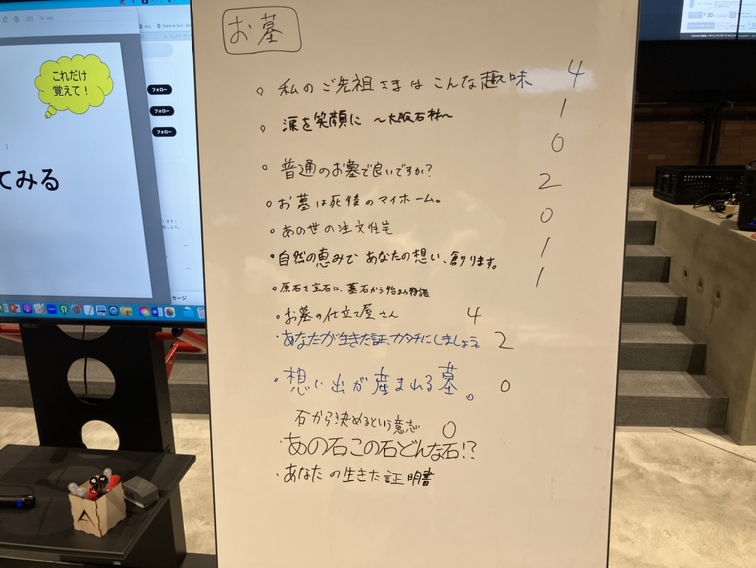 これだけ
覚えて!
フォロー
フォロー
フォロー
てみる
セージ
お墓
。私のご先祖さまはこんな趣味 4
。涙を笑顔に 〜大阪石材〜 1
0
。普通のお墓で良いですか?
2
・お墓は死後のマイホーム。
・あの世の注文住宅 0
・自然の恵みで あなたの想い、創ります。 1
・原石を宝石に、墓石から始まる物語 1
・お墓の仕立て屋さん 4
・あなたが生きた証、カタチにしましょう。 2
・想い出が産まれる墓。 0
石から決めるという意志 0
・あの石この石どんな石!?
・あなたの生きた証明書
30